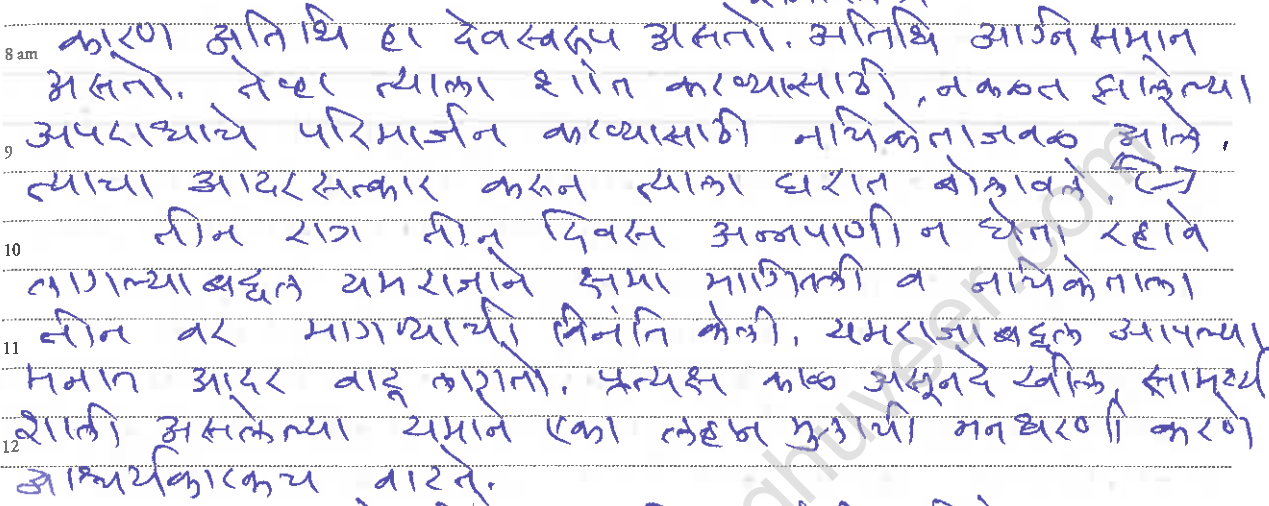 8 am कारण अतिथि हा देवस्वरूप असतो. अतिथि अग्निसमान
असतो. तेव्हा त्याला शांत करण्यासाठी, नकळत झालेल्या
9 अपराधाचे परिमार्जन करण्यासाठी नचिकेताजवळ आले.
त्याचा आदरसत्कार करून त्याला घरात बोलावले.
10 तीन रात्र तीन दिवस अन्नपाणी न घेता रहावे
लागल्याबद्दल यमराजाने क्षमा मागितली व नचिकेताला
11 तीन वर मागण्याची विनंति केली. यमराजाबद्दल आपल्या
मनात आदर वाढू लागतो. प्रत्यक्ष काळ असूनदेखील, सामर्थ्य
12 शाली असलेल्या यमाने एका लहान मुलाची मनधरणी करणे
आश्चर्यकारकच वाटते.
ghuveer.com